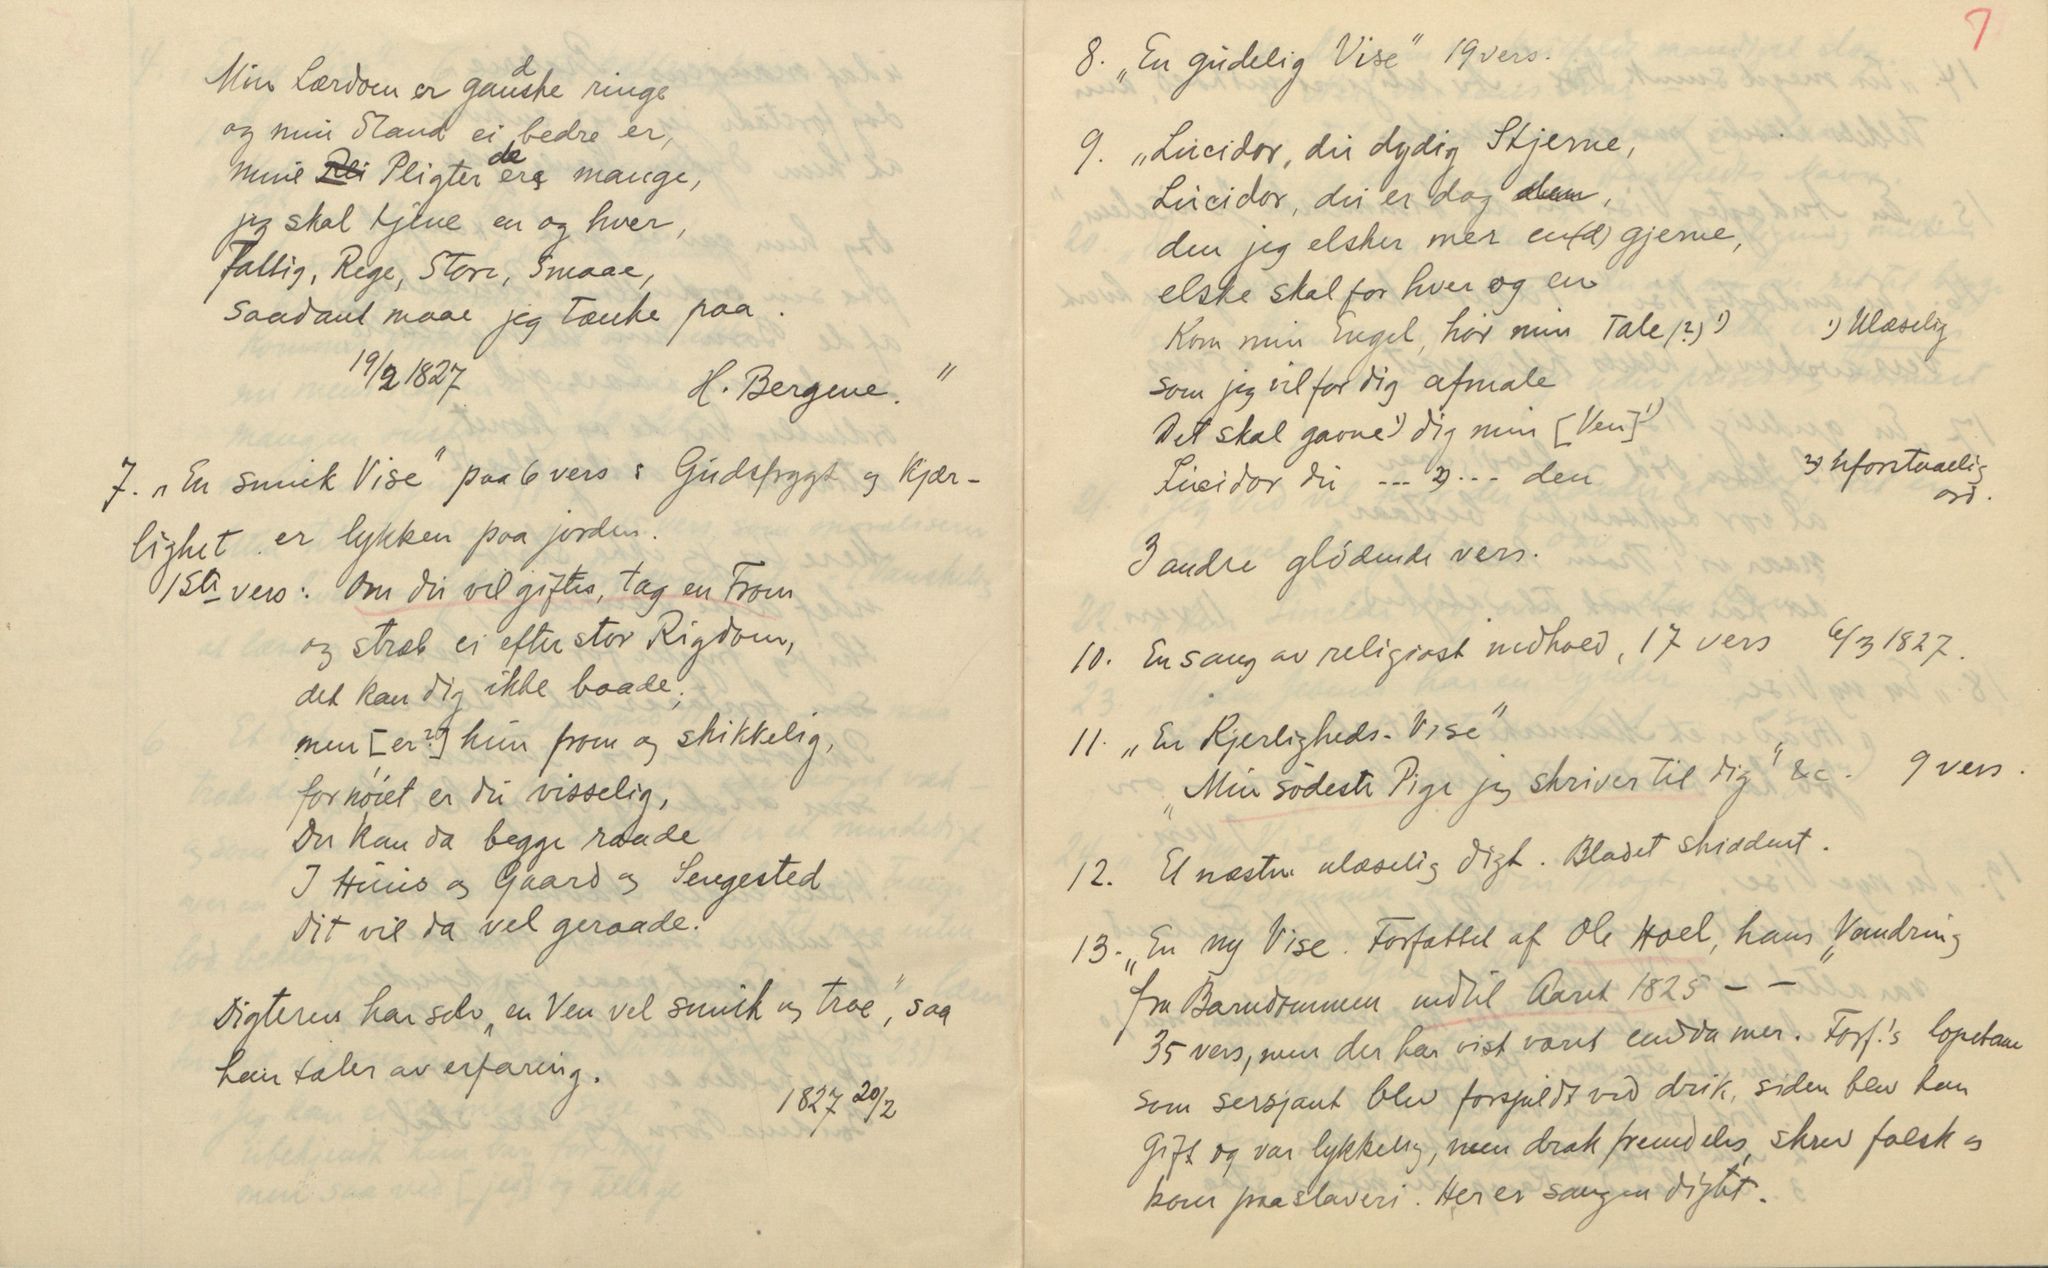 Min Lærdom er gandske ringe
og min Stand ei bedre er,
mine Pligter de ere mange,
jeg skal tjene en og hver,
Fattig, Rege, Store, Smaae,
saadant maae jeg tænke paa.
19/2 1827 H. Bergene. "
7. „En smuk Vise" paa 6 vers: Gudsfrygt og Kjær-
lighet er lykken paa jorden.
1ste vers: Om du vil giftes, tag en From
og stræb ei efter stor Rigdom,
det kan dig ikke baade;
men [er?] hun from og skikkelig,
fornöiet er du visselig,
Du kan da begge raade
I Huus og Gaard og Sengested
Dit vil da vel geraade.
Digteren har selv „en Ven vel smuk og troe", saa
han taler av erfaring.
1827 20/2
7
8. „En gudelig Vise" 19 vers.
9. „Lucidor, du dydig Stjerne,
Lucidor, du er dog den,
den jeg elsker mer en(d) gjerne,
elske skal for hver og en
Kom min Engel, hör min Tale (?) 1) 1) Ulæselig
som jeg vil for dig afmale
Det skal gavne 1) dig min [Ven] 1)
Lucidor du ... 2) ... den 2) Uforstaaelig
ord.
3 andre glödende vers.
10. En sang av religiöst indhold, 17 vers 6/3 1827.
11. „En Kjerligheds-Vise"
„Min södeste Pige jeg skriver til dig" &c. 9 vers.
12. Et næsten ulæselig digt. Bladet skiddent.
13. „En ny Vise. Forfattet af Ole Hoel, hans „Vandring
fra Barndommen indtil Aaret 1825 – –
35 vers, men der har vist været endda mer. Forf.'s löpebane
som sersjant blev forspildt ved drik, siden blev han
gift og var lykkelig, men drak fremdeles, skrev falsk og
kom paa slaveri. Her er sangen digtet.